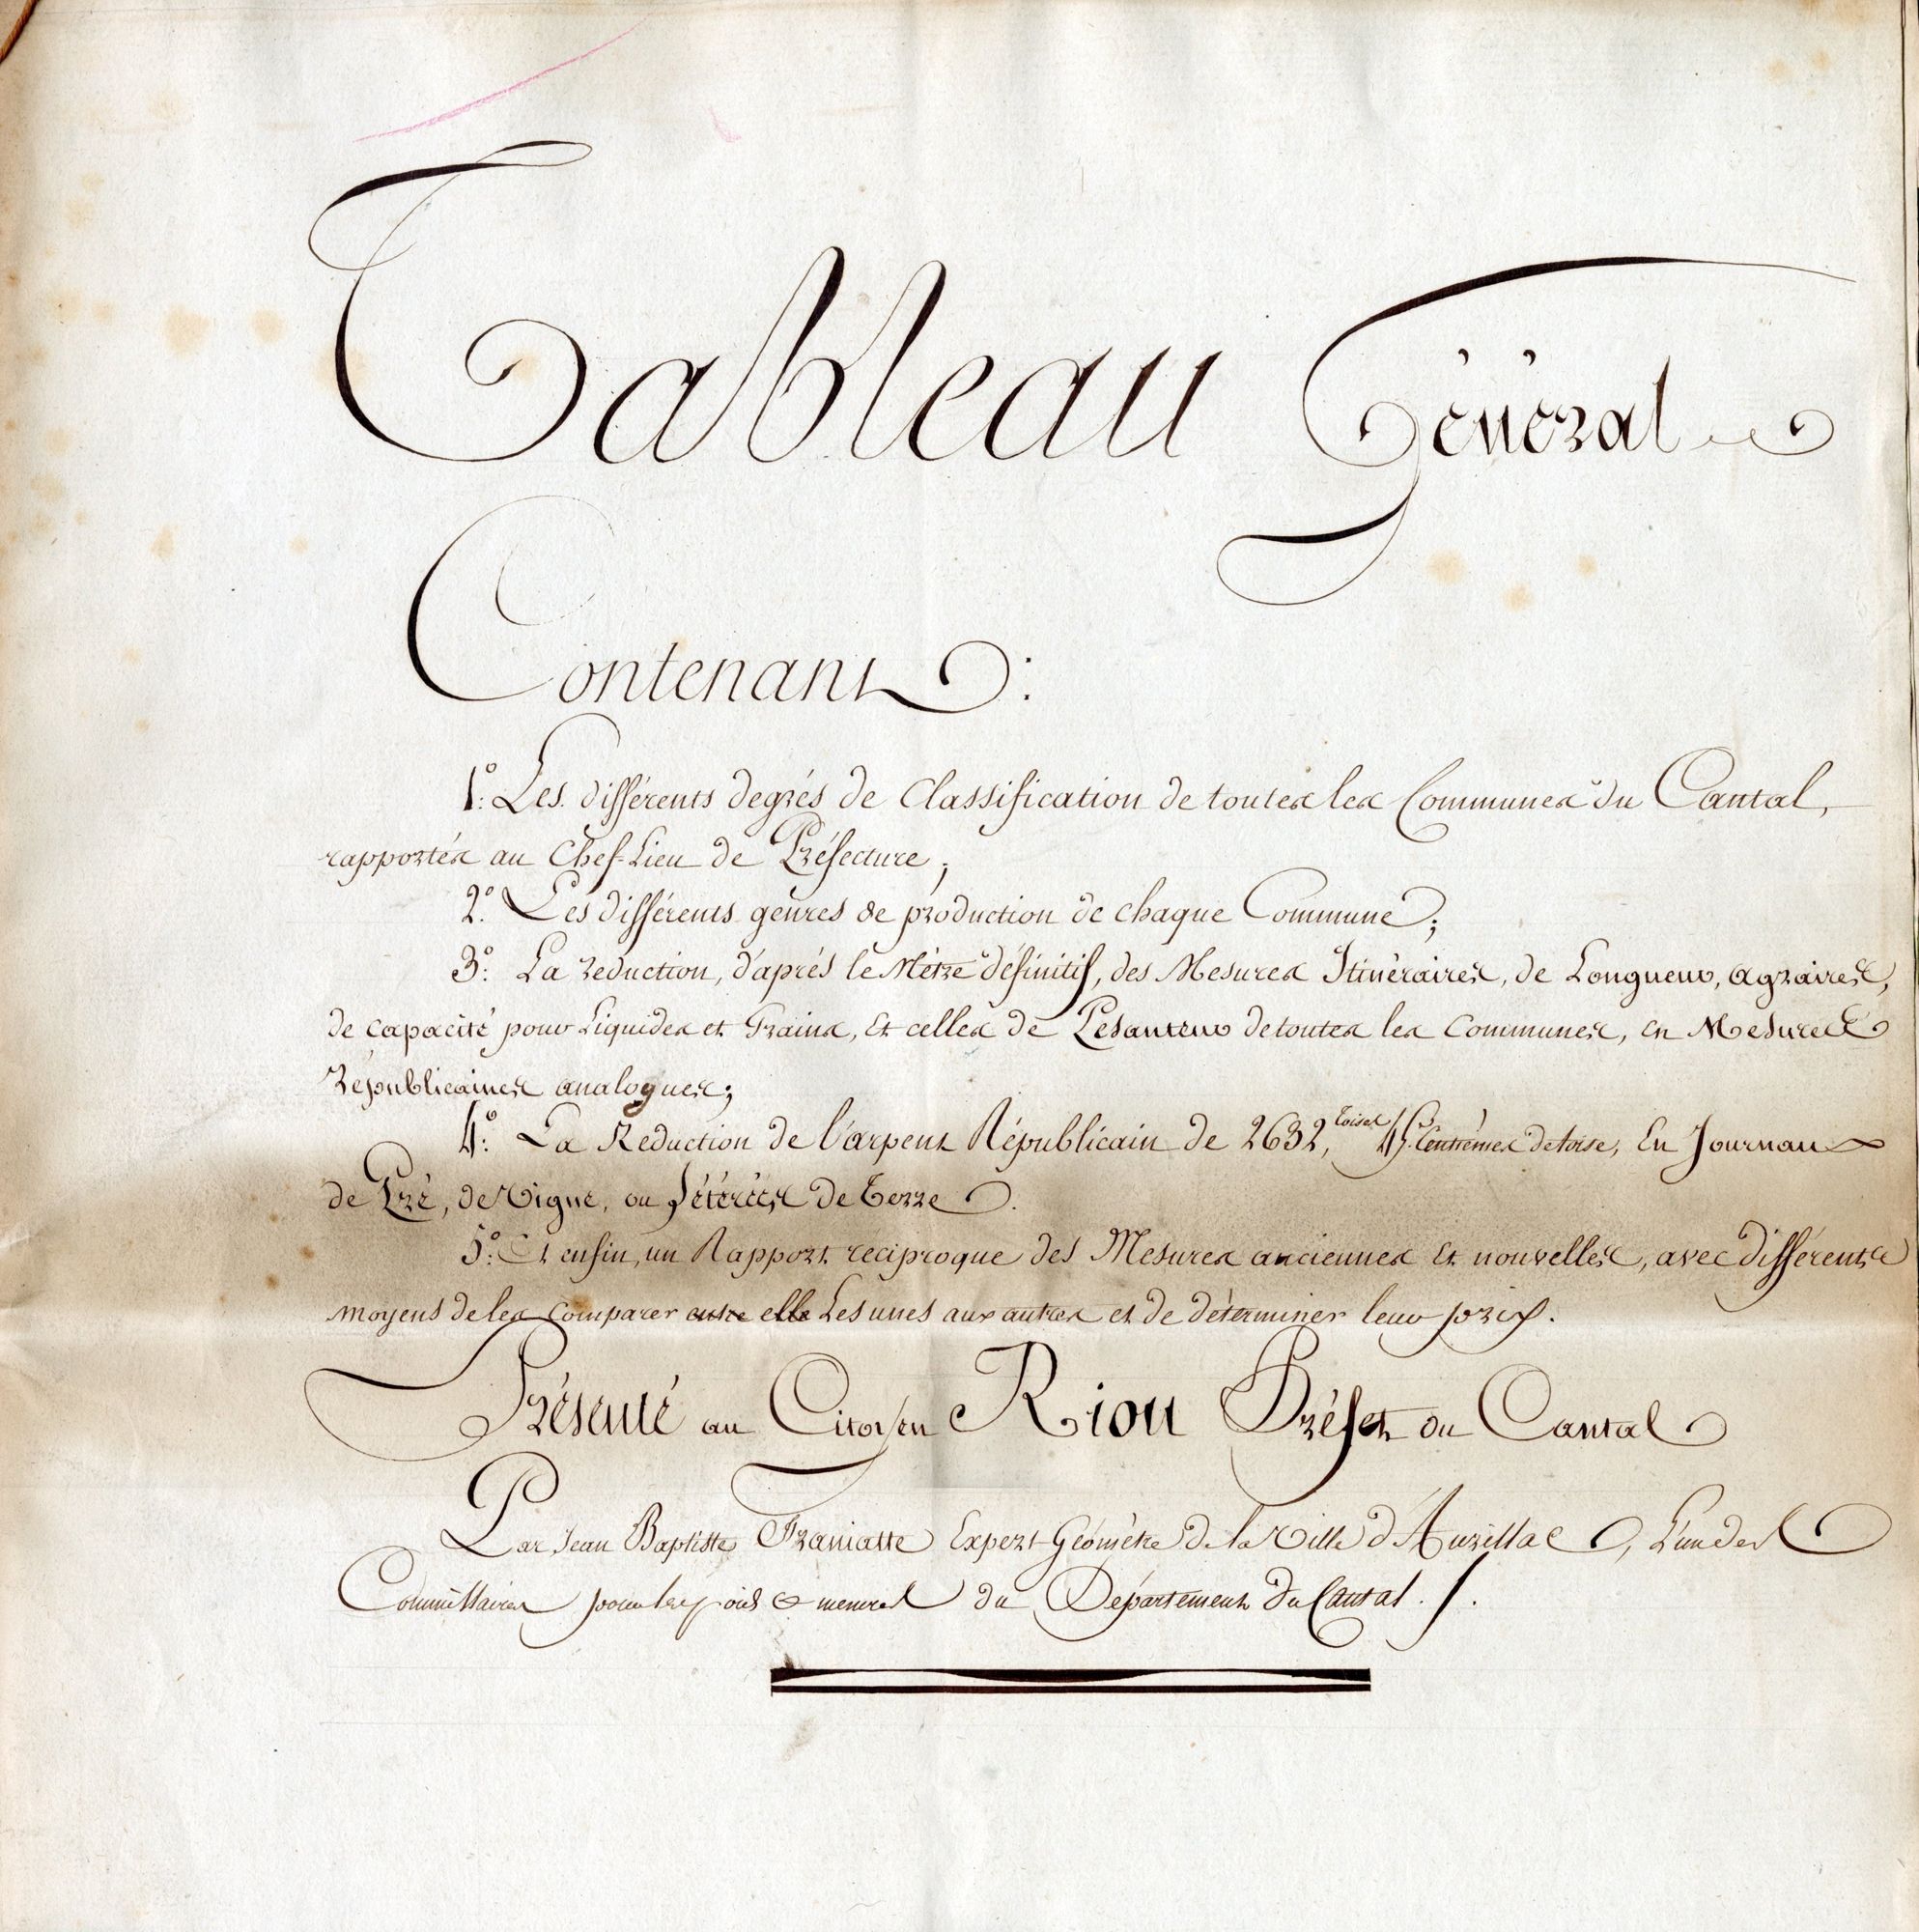 Tableau Général
Contenant :
1.° Les différents degrés de Classification de toutes les Communes du Cantal,
rapportés au Chef-Lieu de Préfecture ;
2.° Les différents genres de production de chaque Commune ;
3.° La réduction, d'après le Mètre définitif, des Mesures Itinéraires, de Longueur, agraires,
de capacité pour Liquides et Grains, et celles de Pesanteur de toutes les Communes, en Mesures
républicaines analogues ;
4.° La Réduction de l'arpent Républicain de 2632, toises 45 Centièmes de toise, En Journaux
de Pré, de Vigne, ou Sétérées de Terre.
5.° Et enfin, un Rapport réciproque des Mesures anciennes et nouvelles, avec différents
moyens de les Comparer entre elle Les unes aux autres et de déterminer leur prix.
Présenté au Citoyen Riou Préfet du Cantal
Par Jean Baptiste Expert-Géomètre de la Ville d'Aurillac, L'un des
Commissaires pour les poids & mesures du Département du Cantal ./.